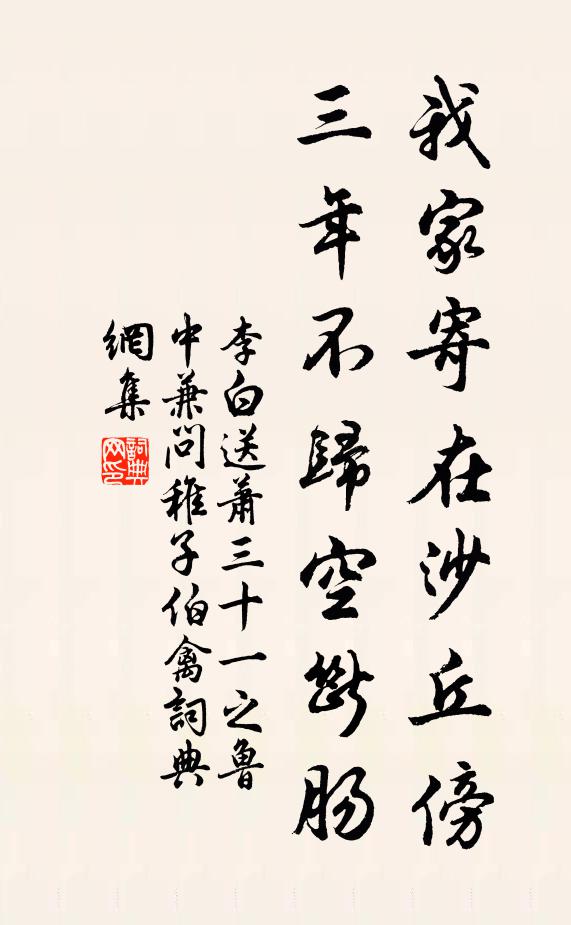 我家寄在沙丘傍
三年不歸空斷腸
李白送蕭三十一之魯
中兼問稚子伯禽詞典
網集
詞典
网印